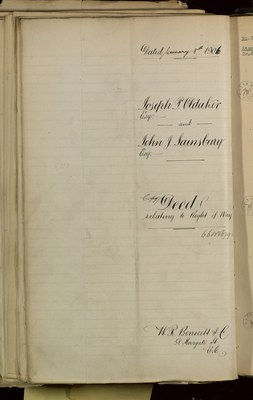 Dated January 8th 1906
Joseph F Oldaker
Esq
and
John J Sainsbury
Esq
Copy
Deed
relating to Right of Way
W. R. Bennett & Co
St
E.C.